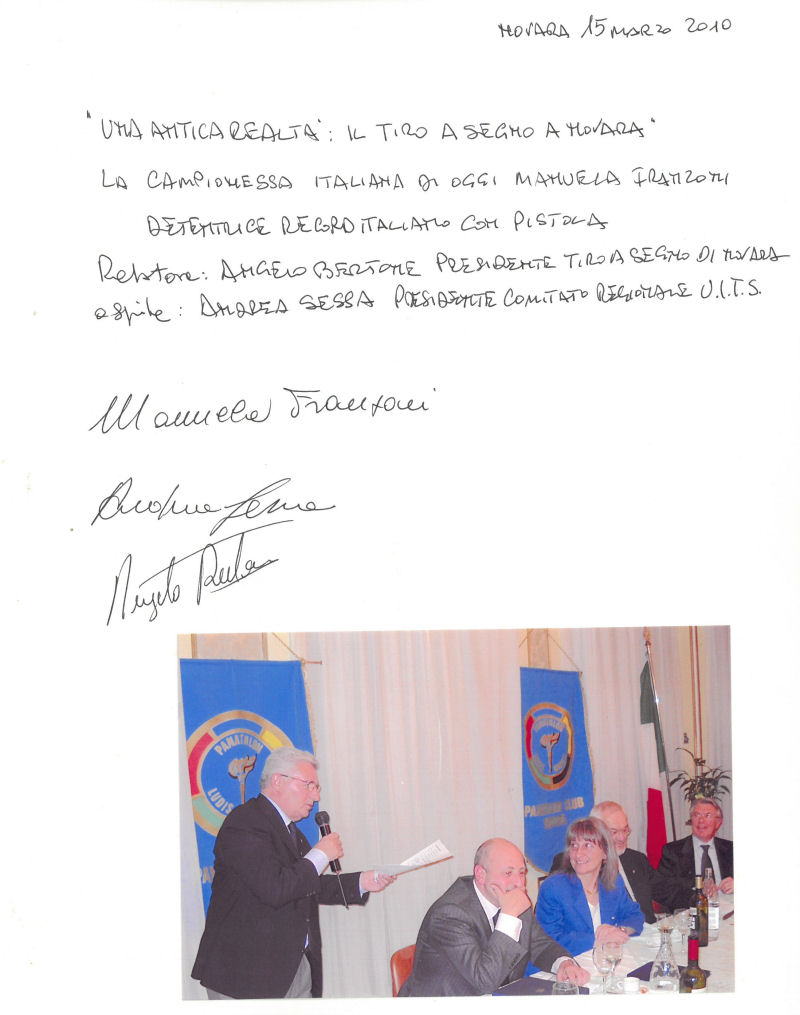 NOVARA 15 MARZO 2010
"UNA ANTICA REALTA': IL TIRO A SEGNO A NOVARA"
LA CAMPIONESSA ITALIANA DI OGGI MANUELA FRANZONI
DETENTRICE RECORD ITALIANO CON PISTOLA
Relatore: ANGELO BERTONE PRESIDENTE TIRO A SEGNO DI NOVARA
ospite: ANDREA SESSA PRESIDENTE COMITATO REGIONALE U.I.T.S.
Manuela Franzoni
Andrea Sessa
Angelo Bertone
PANATHLON
LUDIS
PANATHLON CLUB